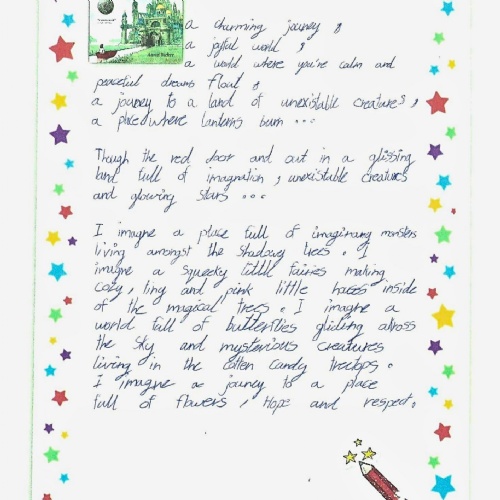 a charming journey,
a joyful world,
a world where you're calm and
peaceful dreams float,
a journey to a land of unexistable creatures,
a place where lanterns burn ...
Though the red door and out in a glissing
land full of imagnation, unexistable creatures
and glowing stars ...
I imagne a place full of imaginary monsters
living amongst the shadowy trees. I
imagne a squeeky little fairies making
cozy, ling and pink little hoses inside
of the magical trees. I imagne a
world full of butterflies gliding allross
the sky and mysterious creatures
living in the cotten candy treetops.
I imagne a journey to a place
full of flowers, Hope and respect.